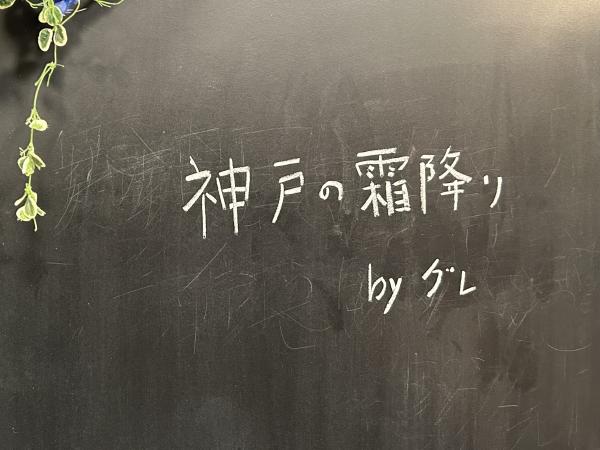 神戸の霜降り
by グレ